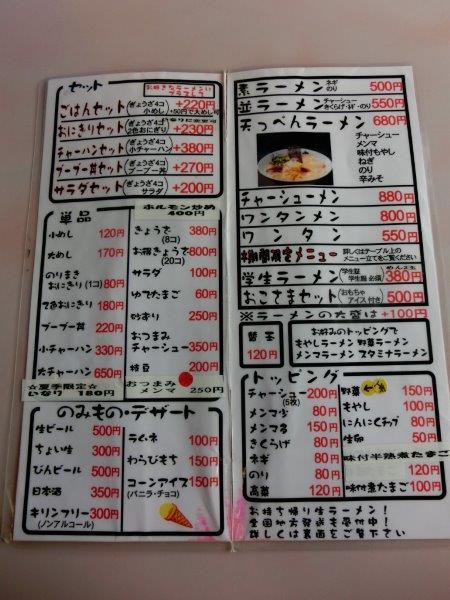 セット
お好きなラーメンに
プラスして
ごはんセット(ぎょうざ4コ 小めし) +220円
+50円で大めし可
おにぎりセット(ぎょうざ4コ 2色おにぎり) +230円
チャーハンセット(ぎょうざ4コ 小チャーハン) +380円
ブーブー丼セット(ぎょうざ4コ ブーブー丼) +270円
サラダセット(ぎょうざ4コ サラダ) +200円
単品
ホルモン炒め
400円
小めし 120円
大めし 170円
のりまき
おにぎり(1コ) 80円
2色おにぎり 180円
ブーブー丼 220円
小チャーハン 330円
大チャーハン 650円
☆夏季限定☆
いなり 180円
ぎょうざ(8コ) 380円
お得ぎょうざ(20コ) 800円
サラダ 100円
ゆでたまご 60円
砂ずり 250円
おつまみ
チャーシュー 350円
枝豆 200円
おつまみ
メンマ 250円
のみもの・デザート
生ビール 500円
ちょい生 300円
びんビール 500円
日本酒 350円
キリンフリー 300円
(ノンアルコール)
ラムネ 100円
わらびもち 150円
コーンアイス 150円
(バニラ・チョコ)
素ラーメン ネギ のり 500円
並ラーメン チャーシュー きくらげ・ネギ・のり 550円
天っぺんラーメン 680円
チャーシュー
メンマ
味付もやし
ねぎ
のり
辛みそ
チャーシューメン 880円
ワンタンメン 800円
ワンタン 550円
期間限定メニュー 詳しくはテーブル上の
メニュー立てをご覧ください
学生ラーメン 380円
おこさまセット(おもちゃ アイス 付き) 500円
※ラーメンの大盛は+100円
替玉
120円
お好みのトッピングで
もやしラーメン 野菜ラーメン
メンマラーメン スタミナラーメン
トッピング
チャーシュー(5枚) 200円
メンマ少 80円
メンマ多 150円
きくらげ 80円
ネギ 80円
のり 80円
高菜 120円
野菜 150円
もやし 100円
にんにくチップ 80円
生卵 50円
味付半熟煮たまご
120円
味付煮たまご 100円
お持ち帰り生ラーメン!
全国地方発送も受付中!
詳しくは裏面をご覧下さい